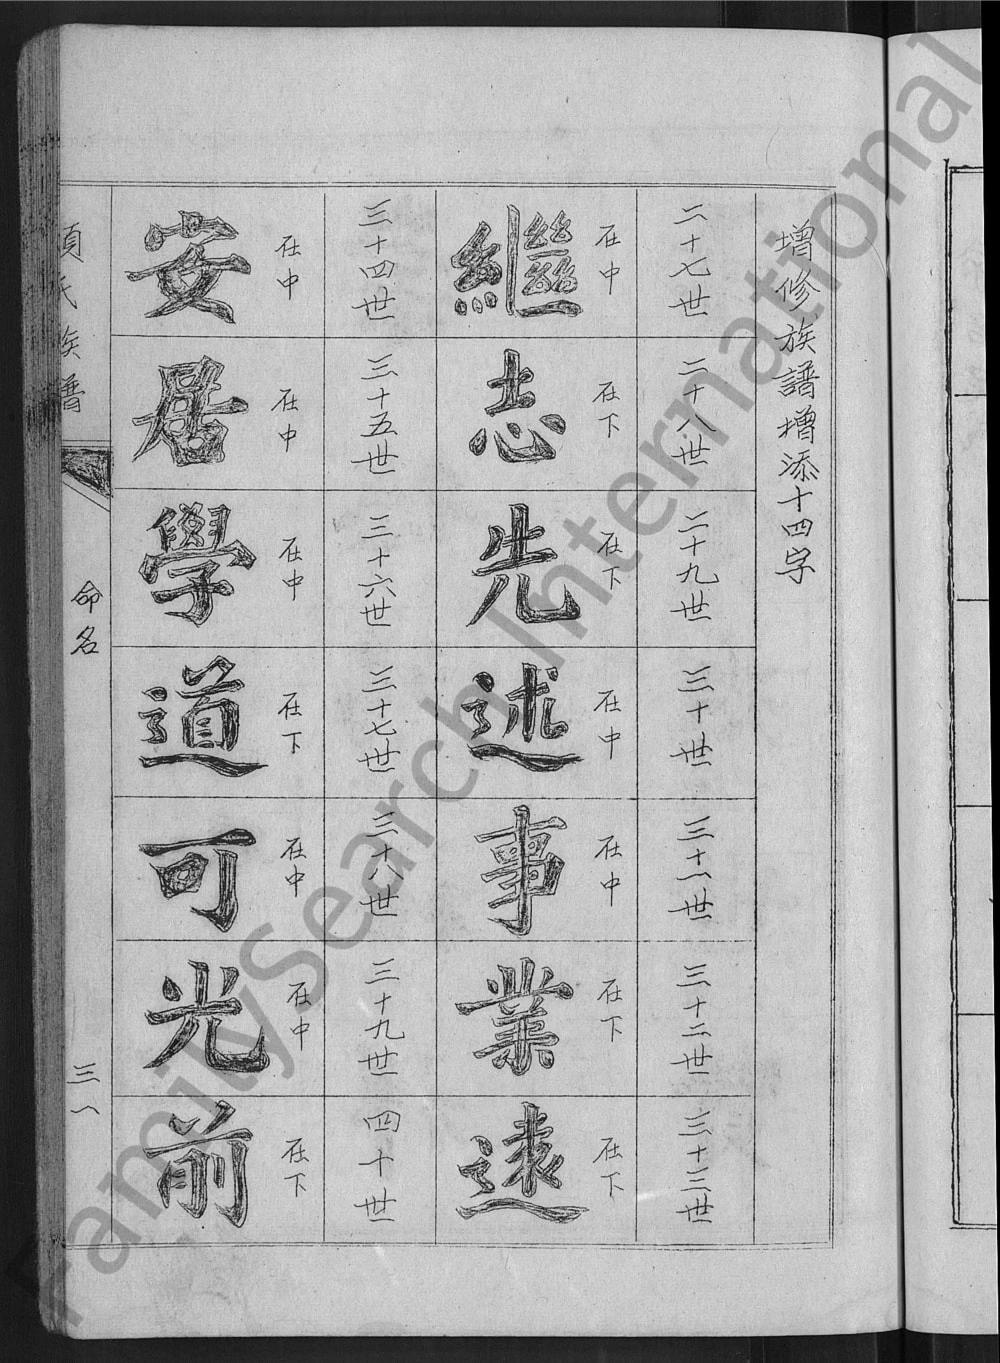 增修族譜增添十四字
二十七世
在中
繼
二十八世
在下
志
二十九世
在下
先
三十世
在中
述
三十一世
在中
事
三十二世
在下
業
三十三世
在下
遠
三十四世
在中
安
三十五世
在中
居
三十六世
在中
學
三十七世
在下
道
三十八世
在中
可
三十九世
在中
光
四十世
在下
前
氏族譜
命名
三八
FamilySearch International